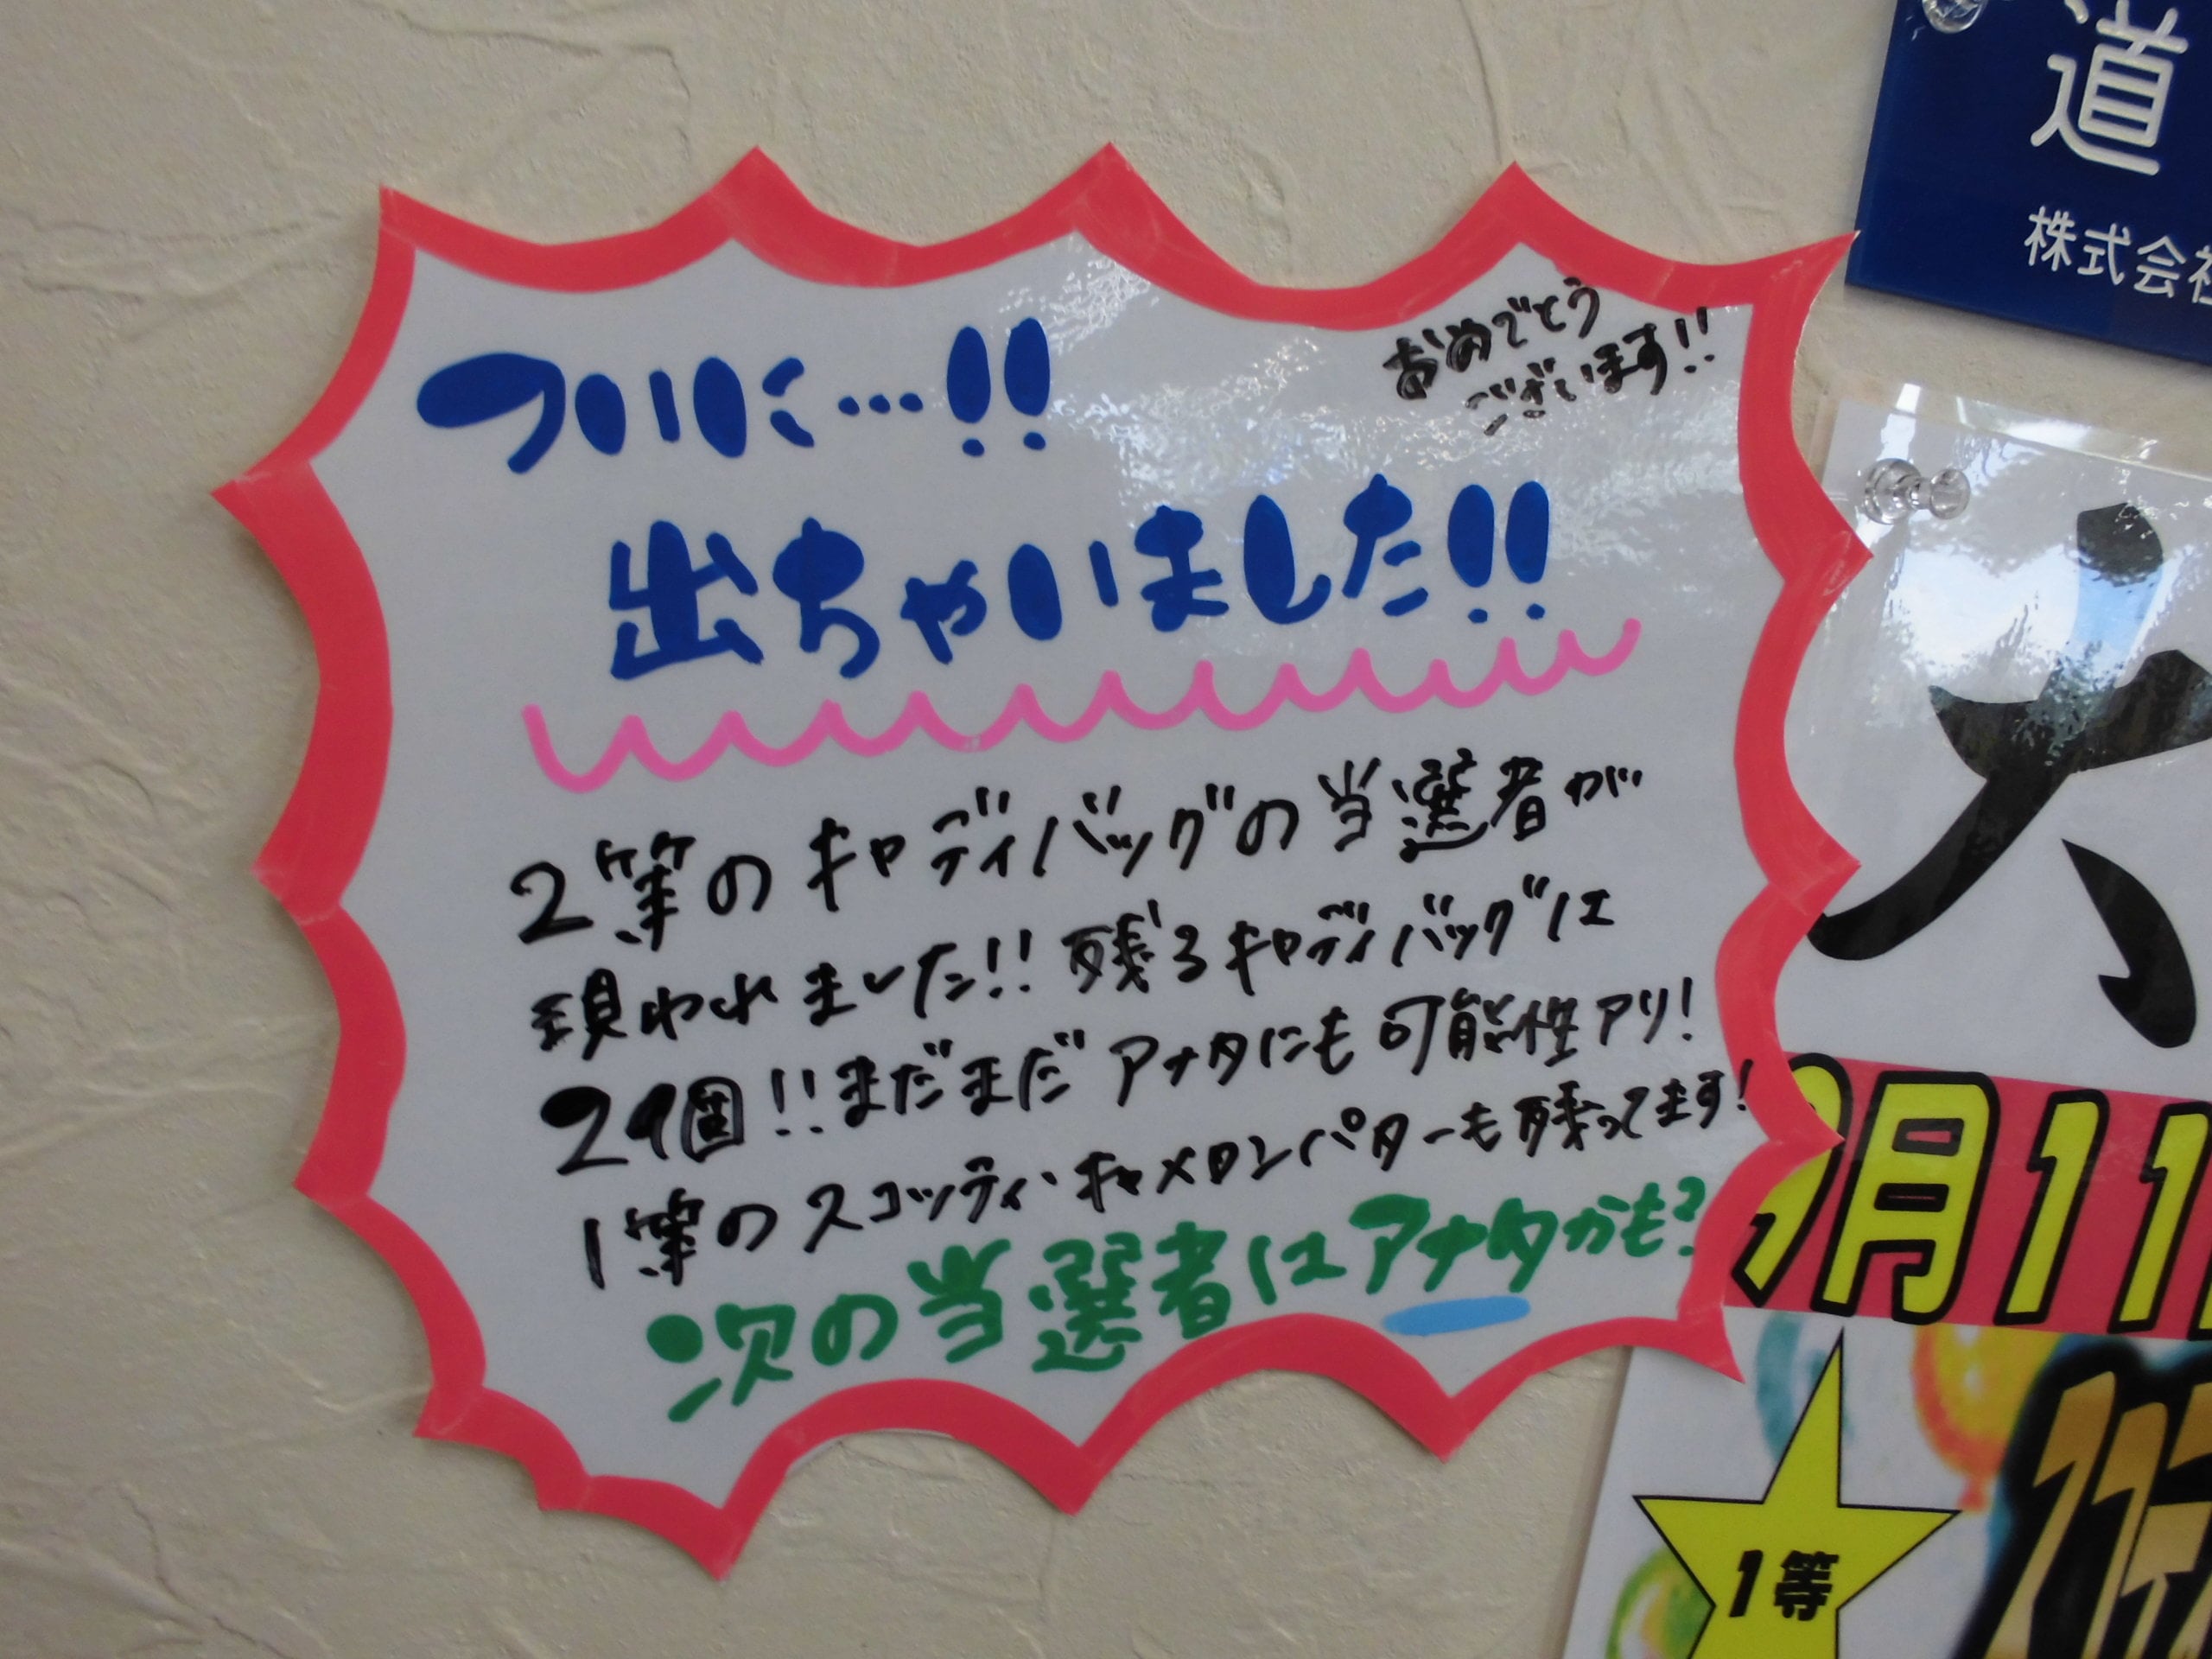 ついに…!!
おめでとう
ございます!!
出ちゃいました!!
2等のキャディバッグの当選者が
現われました!! 残るキャディバッグは
29個!!まだまだアナタにも可能性アリ!
1等のスコッティ・キャメロンパターも残ってます!
次の当選者はアナタかも?
道
株式会社
大
9月11
1等